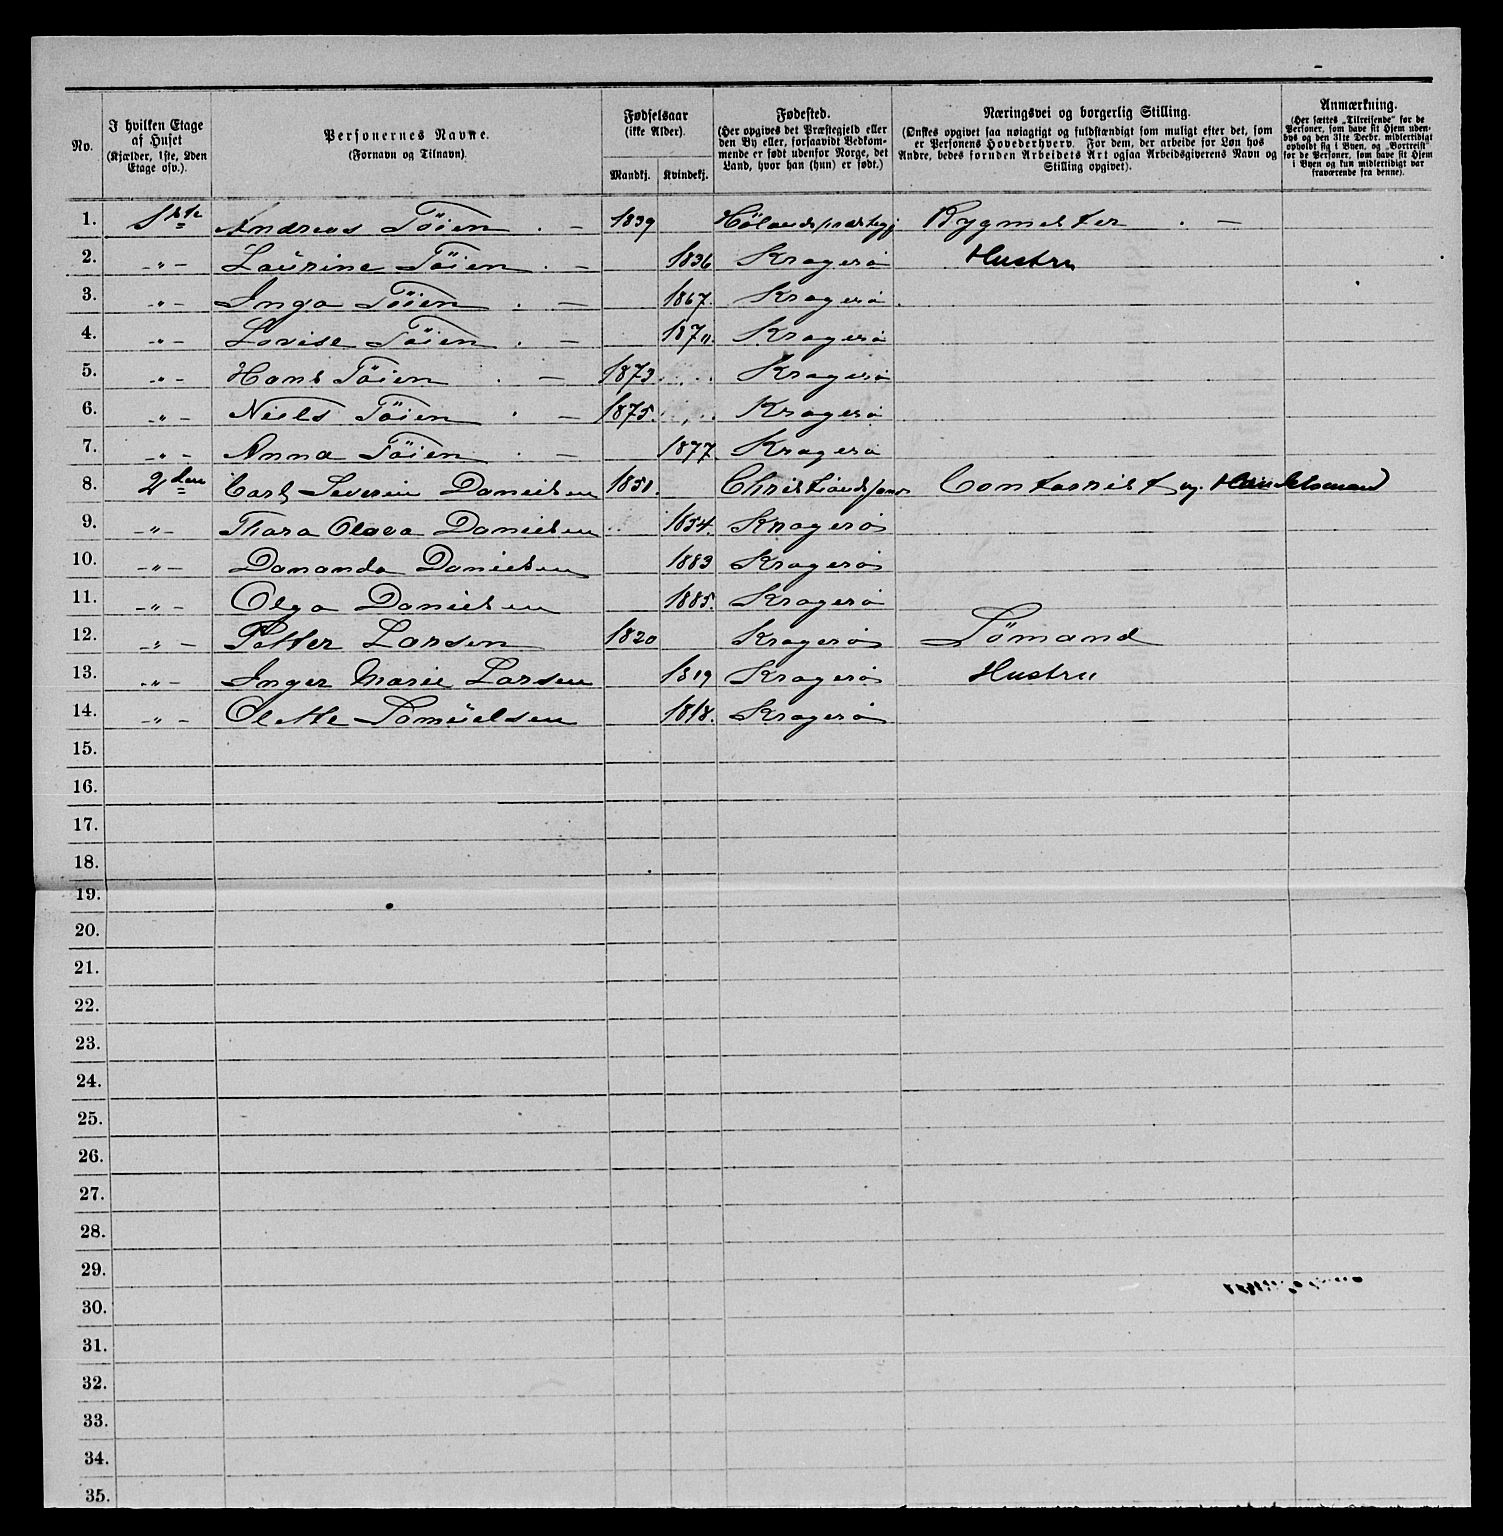 No.
I hvilken Etage af Huset (Kjælder, 1ste, 2den Etage osv.).
Personernes Navne. (Fornavn og Tilnavn).
Fødselsaar (ikke Alder). Mandkj. Kvindekj.
Fødested. (Her opgives det Præstegjeld eller den By eller, forsaavidt Vedkommende er født udenfor Norge, det Land, hvor han (hun) er født.)
Næringsvei og borgerlig Stilling. (Ønskes opgivet saa nøiagtigt og fuldstændigt som muligt efter det, som er Personens Hovederhverv. For dem, der arbeide for Løn hos Andre, bedes foruden Arbeidets Art ogsaa Arbeidsgiverens Navn og Stilling opgivet).
Anmærkning. (Her sættes „Tilreisende" for de Personer, som have sit Hjem udenbys og den 31te Decbr. midlertidigt opholdt sig i Byen, og „Bortreist" for de Personer, som have sit Hjem i Byen og kun midlertidigt var fraværende fra denne).
1. 1ste Andreas Töien . — 1839 Rygmester . —
2. -"- Laurine Töien . — 1836 Kragerö Hustru
3. -"- Inga Töien . — 1867. Kragerö
4. -"- Lovise Töien . — Kragerö
5. -"- Hans Töien . — 1873 Kragerö
6. -"- Niels Töien . — 1875. Kragerö
7. -"- Anna Töien . — 1877 Kragerö
8. 2den Carl Severin Danielsen 1851. Christiansand Contorist og Handelsmand
9. -"- Thara Olava Danielsen 1854. Kragerö
10. -"- Danielsen 1883 Kragerö
11. -"- Olga Danielsen 1885. Kragerö
12. -"- Petter Larsen 1820 Kragerö Sömand
13. -"- Inger Marie Larsen 1819 Kragerö Hustru
14. -"- Olette Samuelsen 1818. Kragerö
15.
16.
17.
18.
19.
20.
21.
22.
23.
24.
25.
26.
27.
28.
29.
30.
31.
32.
33.
34.
35.